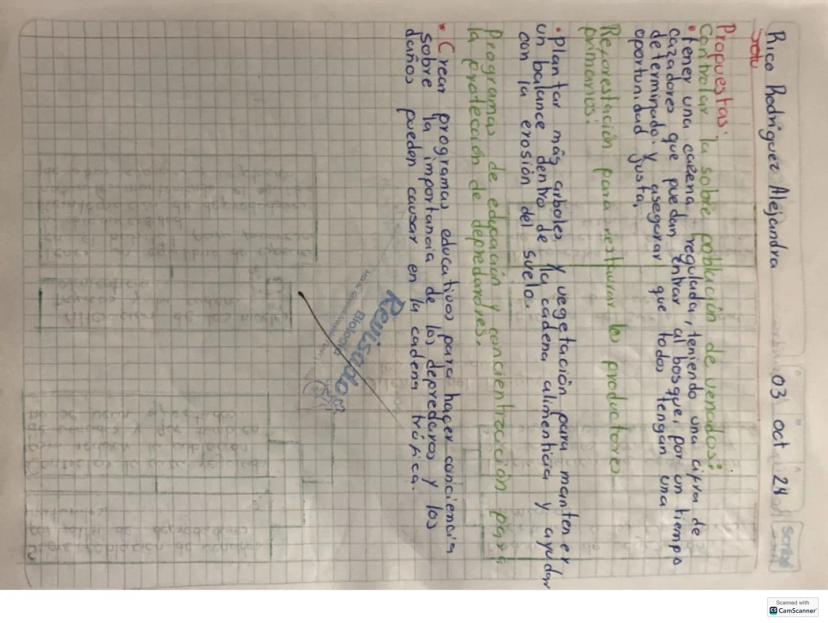 Rico Rodriguez Alejandra 03 oct 24
scribe
Propuestas:
Controlar la sobre población de venados:
• tener una cazena regulada, teniendo una cifra de
cazadores que puedan entrar al bosque, por un tiempo
determinado. y asegurar que todos tengan una
oportunidad justa.
Reforestación para restaurar los productores
primarios:
• Plantar más arboles y vegetación para mantener
un balance dentro de la cadena alimenticia y ayudar
con la erosión del suelo.
Programas de edycación y concientización para
la protección de depredandres.
• Crear programas educativos para hacer conciencia
sobre la importancia de los depredaros y los
daños pueden causar en la cadena trófica.
Revisado
Biología
Scanned with
CamScanner